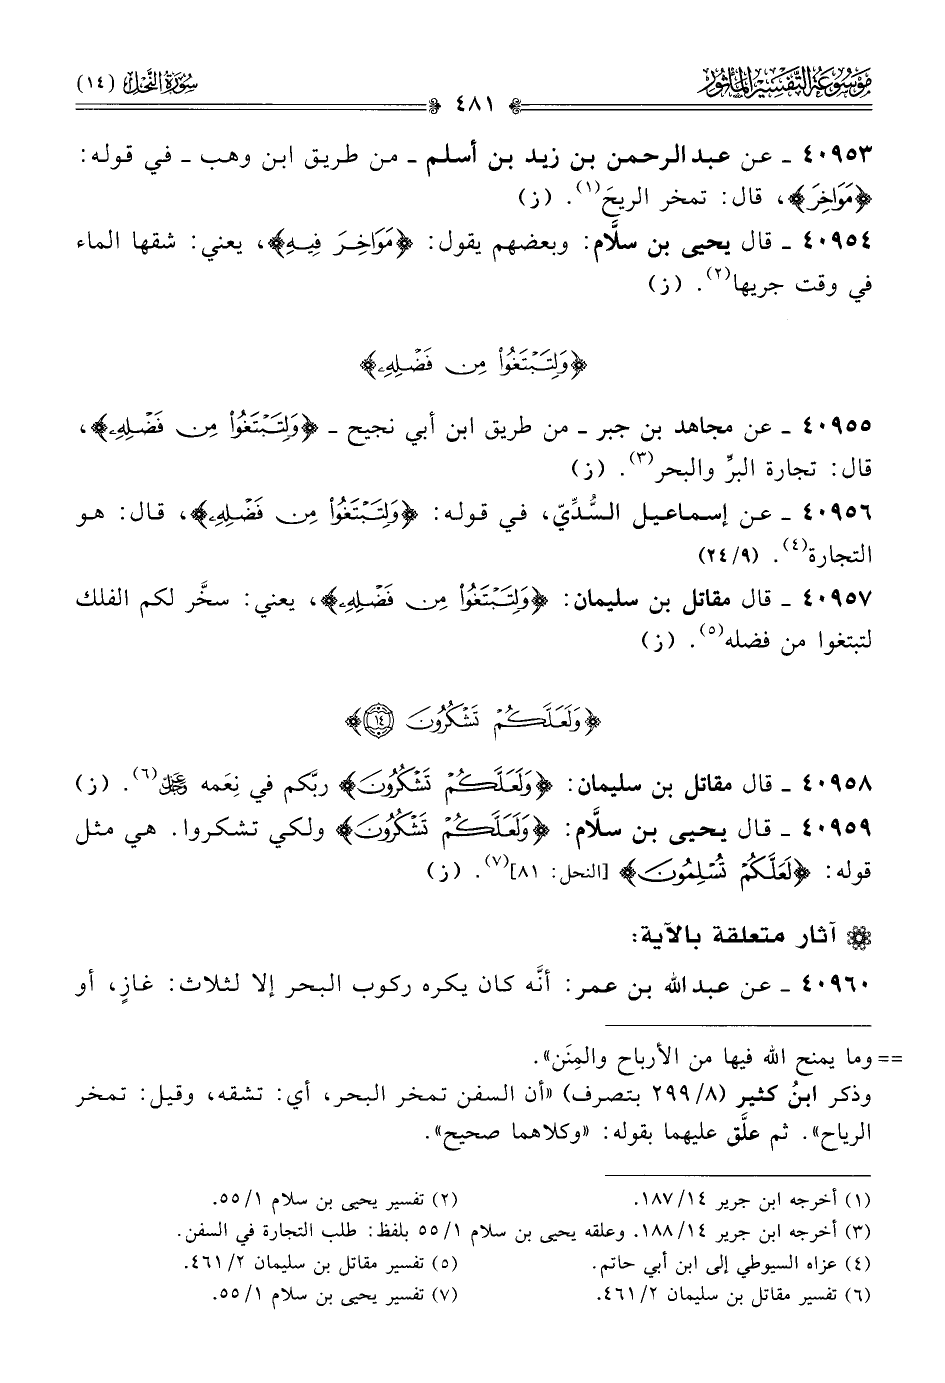 مَوْسُوعَةُ التَّفْسِيْرِ المَأْثُور
سُورَةُ النَّحْل (١٤)
٤٨١
٤٠٩٥٣ ـ عن عبد الرحمن بن زيد بن أسلم ـ من طريق ابن وهب ـ في قوله:
﴿مَوَاخِرَ﴾، قال: تمخر الريحَ(١). (ز)
٤٠٩٥٤ ـ قال يحيى بن سلَّام: وبعضهم يقول: ﴿مَوَاخِرَ فِيهِ﴾، يعني: شقها الماء
في وقت جريها(٢). (ز)
﴿وَلِتَبْتَغُوا۟ مِن فَضْلِهِۦ﴾
٤٠٩٥٥ ـ عن مجاهد بن جبر ـ من طريق ابن أبي نجيح ـ ﴿وَلِتَبْتَغُوا۟ مِن فَضْلِهِۦ﴾،
قال: تجارة البرِّ والبحر(٣). (ز)
٤٠٩٥٦ ـ عن إسماعيل السُّدِّيّ، في قوله: ﴿وَلِتَبْتَغُوا۟ مِن فَضْلِهِۦ﴾، قال: هو
التجارة(٤). (٩/ ٢٤)
٤٠٩٥٧ ـ قال مقاتل بن سليمان: ﴿وَلِتَبْتَغُوا۟ مِن فَضْلِهِۦ﴾، يعني: سخَّر لكم الفلك
لتبتغوا من فضله(٥). (ز)
﴿وَلَعَلَّكُمْ تَشْكُرُونَ ١٤﴾
٤٠٩٥٨ ـ قال مقاتل بن سليمان: ﴿وَلَعَلَّكُمْ تَشْكُرُونَ﴾ ربَّكم في نِعَمه ﷿(٦). (ز)
٤٠٩٥٩ ـ قال يحيى بن سلَّام: ﴿وَلَعَلَّكُمْ تَشْكُرُونَ﴾ ولكي تشكروا. هي مثل
قوله: ﴿لَعَلَّكُمْ تُسْلِمُونَ﴾ [النحل: ٨١](٧). (ز)
آثار متعلقة بالآية:
٤٠٩٦٠ ـ عن عبد الله بن عمر: أنَّه كان يكره ركوب البحر إلا لثلاث: غازٍ، أو
== وما يمنح الله فيها من الأرباح والمِنَن».
وذكر ابنُ كثير (٨/ ٢٩٩ بتصرف) «أن السفن تمخر البحر، أي: تشقه، وقيل: تمخر
الرياح». ثم علَّق عليهما بقوله: «وكلاهما صحيح».
(١) أخرجه ابن جرير ١٤/ ١٨٧.
(٢) تفسير يحيى بن سلام ١/ ٥٥.
(٣) أخرجه ابن جرير ١٤/ ١٨٨. وعلقه يحيى بن سلام ١/ ٥٥ بلفظ: طلب التجارة في السفن.
(٤) عزاه السيوطي إلى ابن أبي حاتم.
(٥) تفسير مقاتل بن سليمان ٢/ ٤٦١.
(٦) تفسير مقاتل بن سليمان ٢/ ٤٦١.
(٧) تفسير يحيى بن سلام ١/ ٥٥.